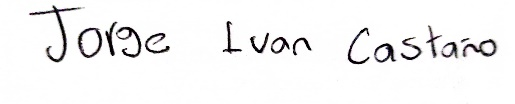 Jorge Ivan Castaño